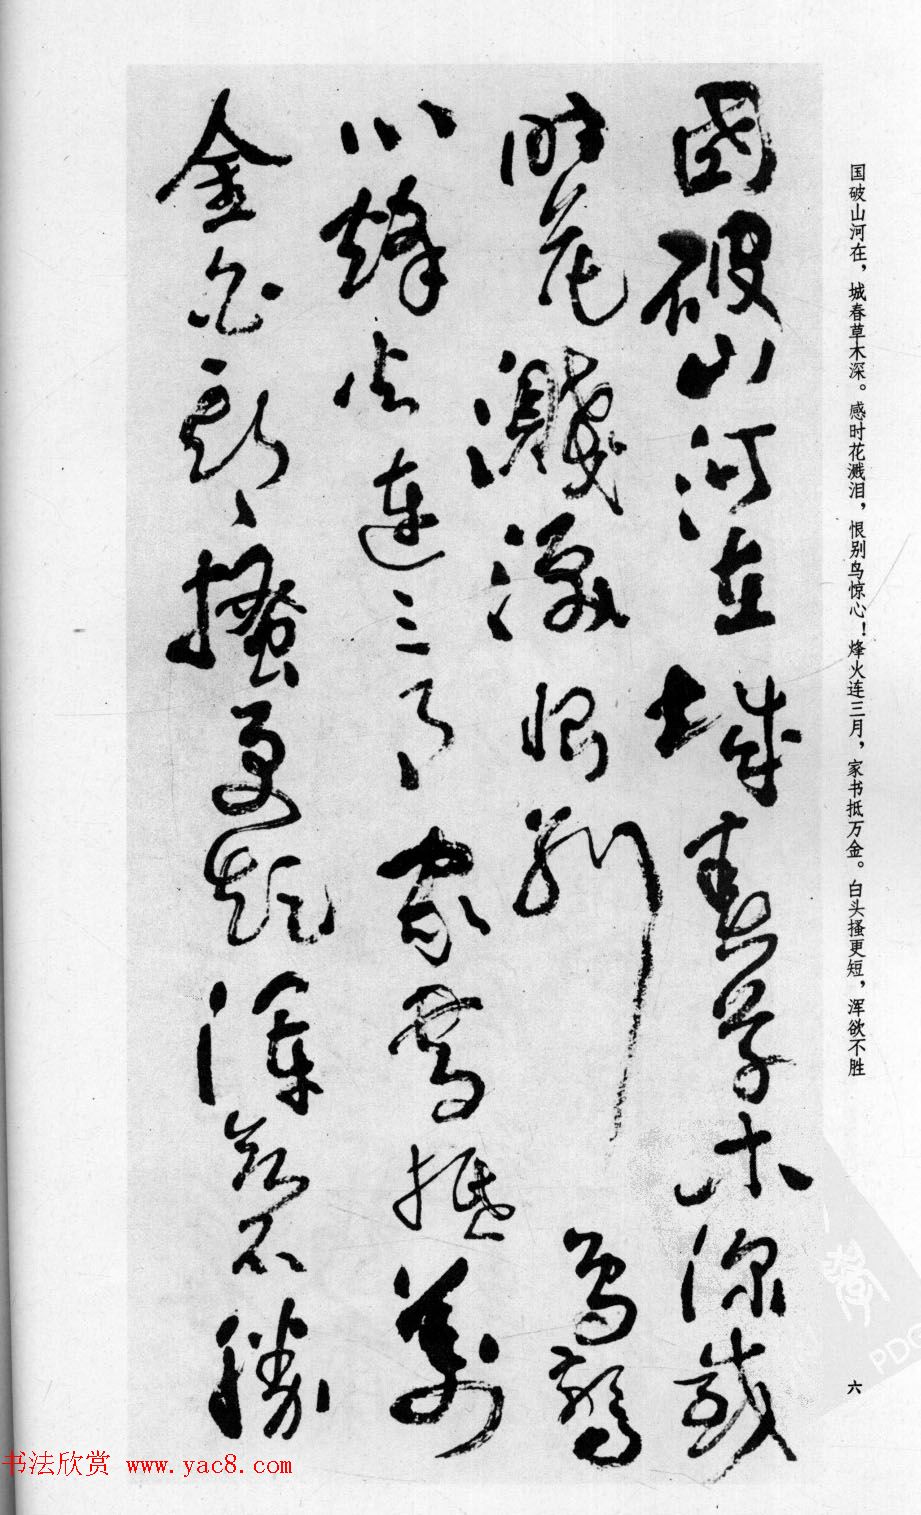 國破山河在城春草木深感
時花濺淚恨别鳥驚
心烽火連三月家書抵萬
金白頭搔更短渾欲不勝
国破山河在，城春草木深。感时花溅泪，恨别鸟惊心！烽火连三月，家书抵万金。白头搔更短，浑欲不胜
六
书法欣赏 www.yac8.com